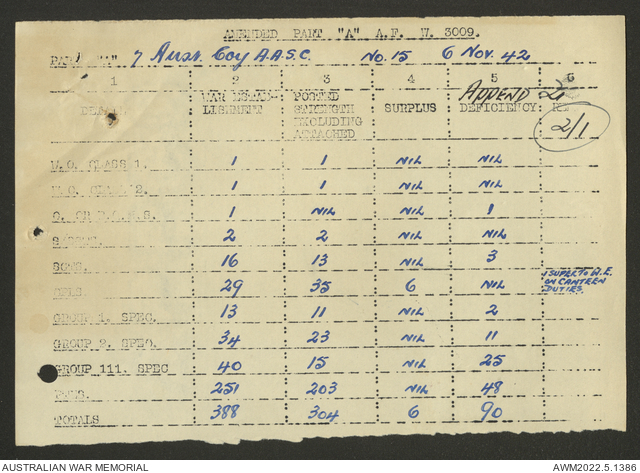 AMENDED PART "A" A.F. W. 3009.
PART "A" 7 Aust Coy A.A.S.C. No. 15 6 Nov. 42
1 2 3 4 5 6
Append 2
WAR ESTAB- POSTED
CLASS LISHMENT STRENGTH SURPLUS DEFICIENCY
INCLUDING 2/1
ATTACHED
W.O. CLASS 1. 1 1 NIL NIL
W.O. CLASS 2. 1 1 NIL NIL
1 NIL NIL 1
2 2 NIL NIL
SGTS. 16 13 NIL 3
CPLS 29 35 6 NIL 1 SUPER TO W.E.
ON CANTEEN
DUTIES.
GROUP 1. SPEC. 13 11 NIL 2
GROUP 2. SPEC. 34 23 NIL 11
GROUP 111. SPEC 40 15 NIL 25
PTES. 251 203 NIL 48
TOTALS 388 304 6 90
AUSTRALIAN WAR MEMORIAL AWM2022.5.1386